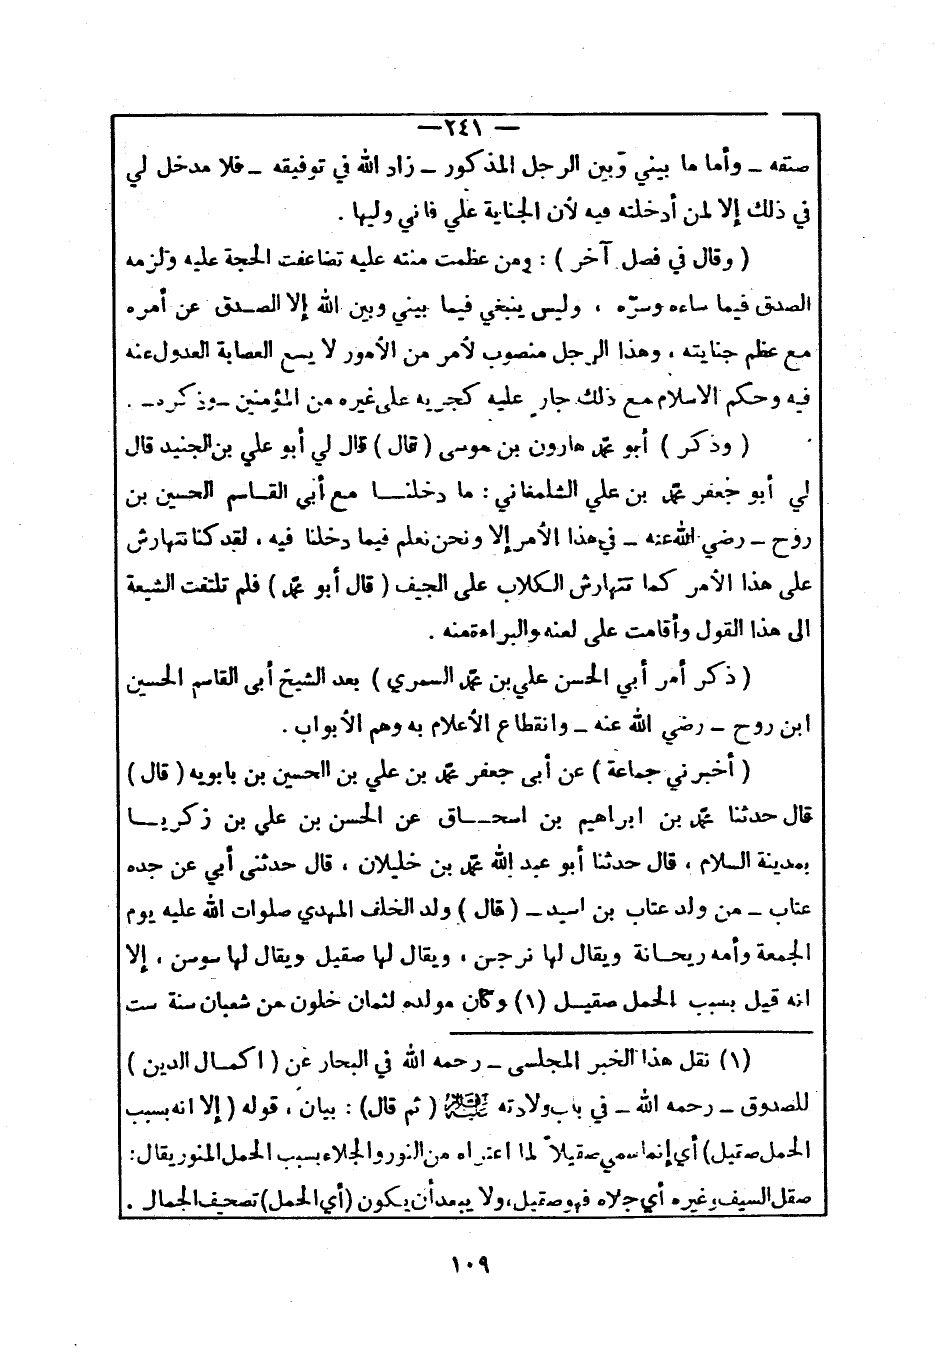 — ٢٤١ —
صنقه ـ وأما ما بيني وبين الرجل المذكور ـ زاد الله في توفيقه ـ فلا مدخل لي
في ذلك إلا لمن أدخلته فيه لأن الجناية علي فاني وليها .
( وقال في فصل آخر ) : ومن عظمت منته عليه تضاعفت الحجة عليه ولزمه
الصدق فيما ساءه وسرّه ، وليس ينبغي فيما بيني وبين الله إلا الصدق عن أمره
مع عظم جنايته ، وهذا الرجل منصوب لأمر من الأمور لا يسع العصابة العدول عنه
فيه وحكم الاسلام مع ذلك جار عليه كجريه على غيره من المؤمنين ـ وذكره ـ .
( وذكر ) أبو محمد هارون بن موسى ( قال ) قال لي أبو علي بن الجنيد قال
لي أبو جعفر محمد بن علي الشلمغاني : ما دخلنا مع أبي القاسم الحسين بن
روح ـ رضي الله عنه ـ في هذا الأمر إلا ونحن نعلم فيما دخلنا فيه ، لقد كنا نتهارش
على هذا الأمر كما تتهارش الكلاب على الجيف ( قال أبو محمد ) فلم تلتفت الشيعة
الى هذا القول وأقامت على لعنه والبراءة منه .
( ذكر أمر أبي الحسن علي بن محمد السمري ) بعد الشيخ أبى القاسم الحسين
ابن روح ـ رضي الله عنه ـ وانقطاع الأعلام به وهم الأبواب .
( أخبرني جماعة ) عن أبى جعفر محمد بن علي بن الحسين بن بابويه ( قال )
قال حدثنا محمد بن ابراهيم بن اسحاق عن الحسن بن علي بن زكريا
بمدينة السلام ، قال حدثنا أبو عبد الله محمد بن خليلان ، قال حدثنى أبي عن جده
عتاب ـ من ولد عتاب بن اسيد ـ ( قال ) ولد الخلف المهدي صلوات الله عليه يوم
الجمعة وأمه ريحانة ويقال لها نرجس ، ويقال لها صقيل ويقال لها سوسن ، إلا
انه قيل بسبب الحمل صقيل (١) وكان مولده لثمان خلون من شعبان سنة ست
(١) نقل هذا الخبر المجلسى ـ رحمه الله في البحار عن ( اكمال الدين )
للصدوق ـ رحمه الله ـ في باب ولادته عليه السلام ( ثم قال ) : بيان ، قوله ( إلا انه بسبب
الحمل صقيل ) أي إنما سمي صقيلاً لما اعتراه من النور والجلاء بسبب الحمل المنور يقال :
صقل السيف وغيره أي جلاه فهو صقيل ، ولا يبعد أن يكون ( أي الحمل ) تصحيف الجمال .
١٠٩